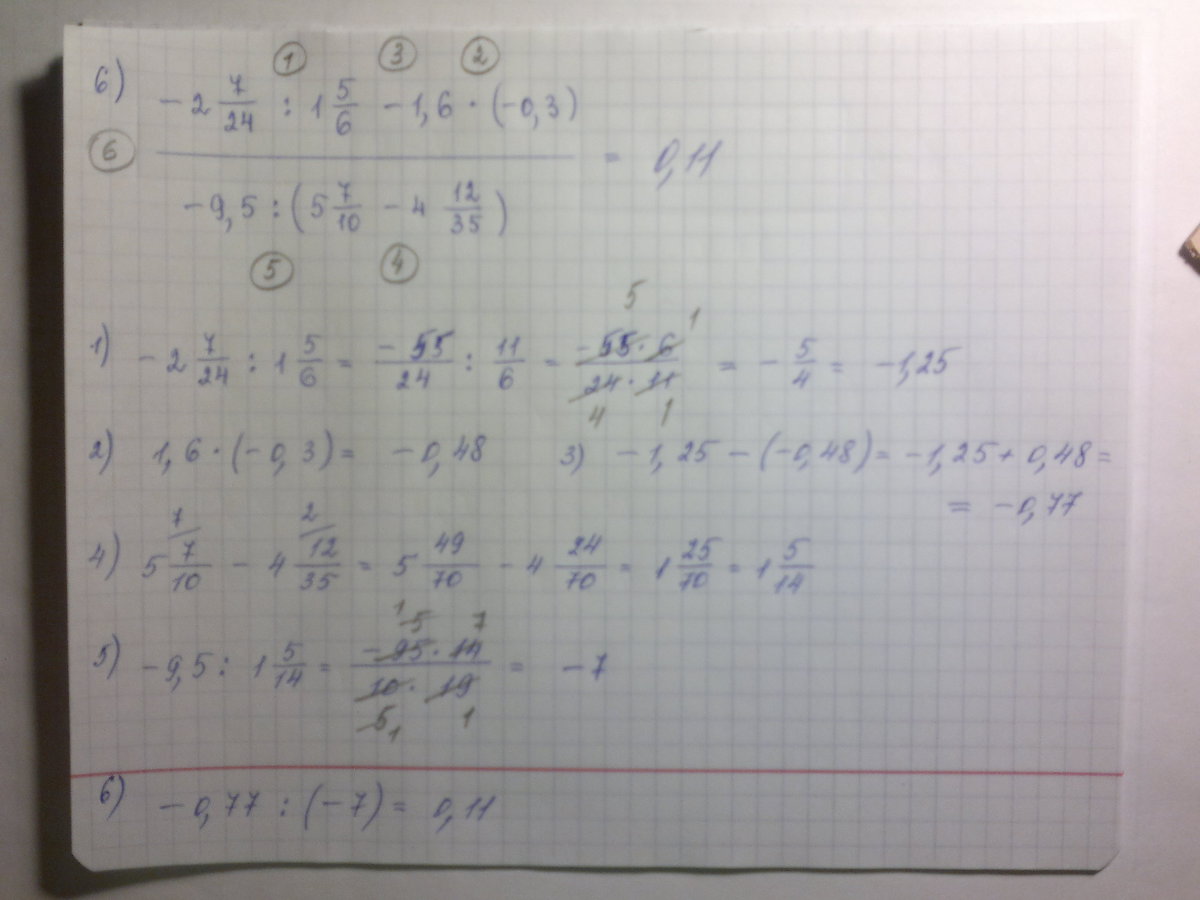 ① ③ ②
6) -2 7/24 : 1 5/6 - 1,6 · (-0,3)
⑥ ──────────── = 0,11
-9,5 : (5 7/10 - 4 12/35)
⑤ ④
1) -2 7/24 : 1 5/6 = -55/24 : 11/6 = (-55 · 6)/(24 · 11) = -5/4 = -1,25
5 1
4 1
2) 1,6 · (-0,3) = -0,48 3) -1,25 - (-0,48) = -1,25 + 0,48 =
= -0,77
7 2
4) 5 7/10 - 4 12/35 = 5 49/70 - 4 24/70 = 1 25/70 = 1 5/14
1 5 7
5) -9,5 : 1 5/14 = (-95 · 14)/(10 · 19) = -7
5 1 1
6) -0,77 : (-7) = 0,11